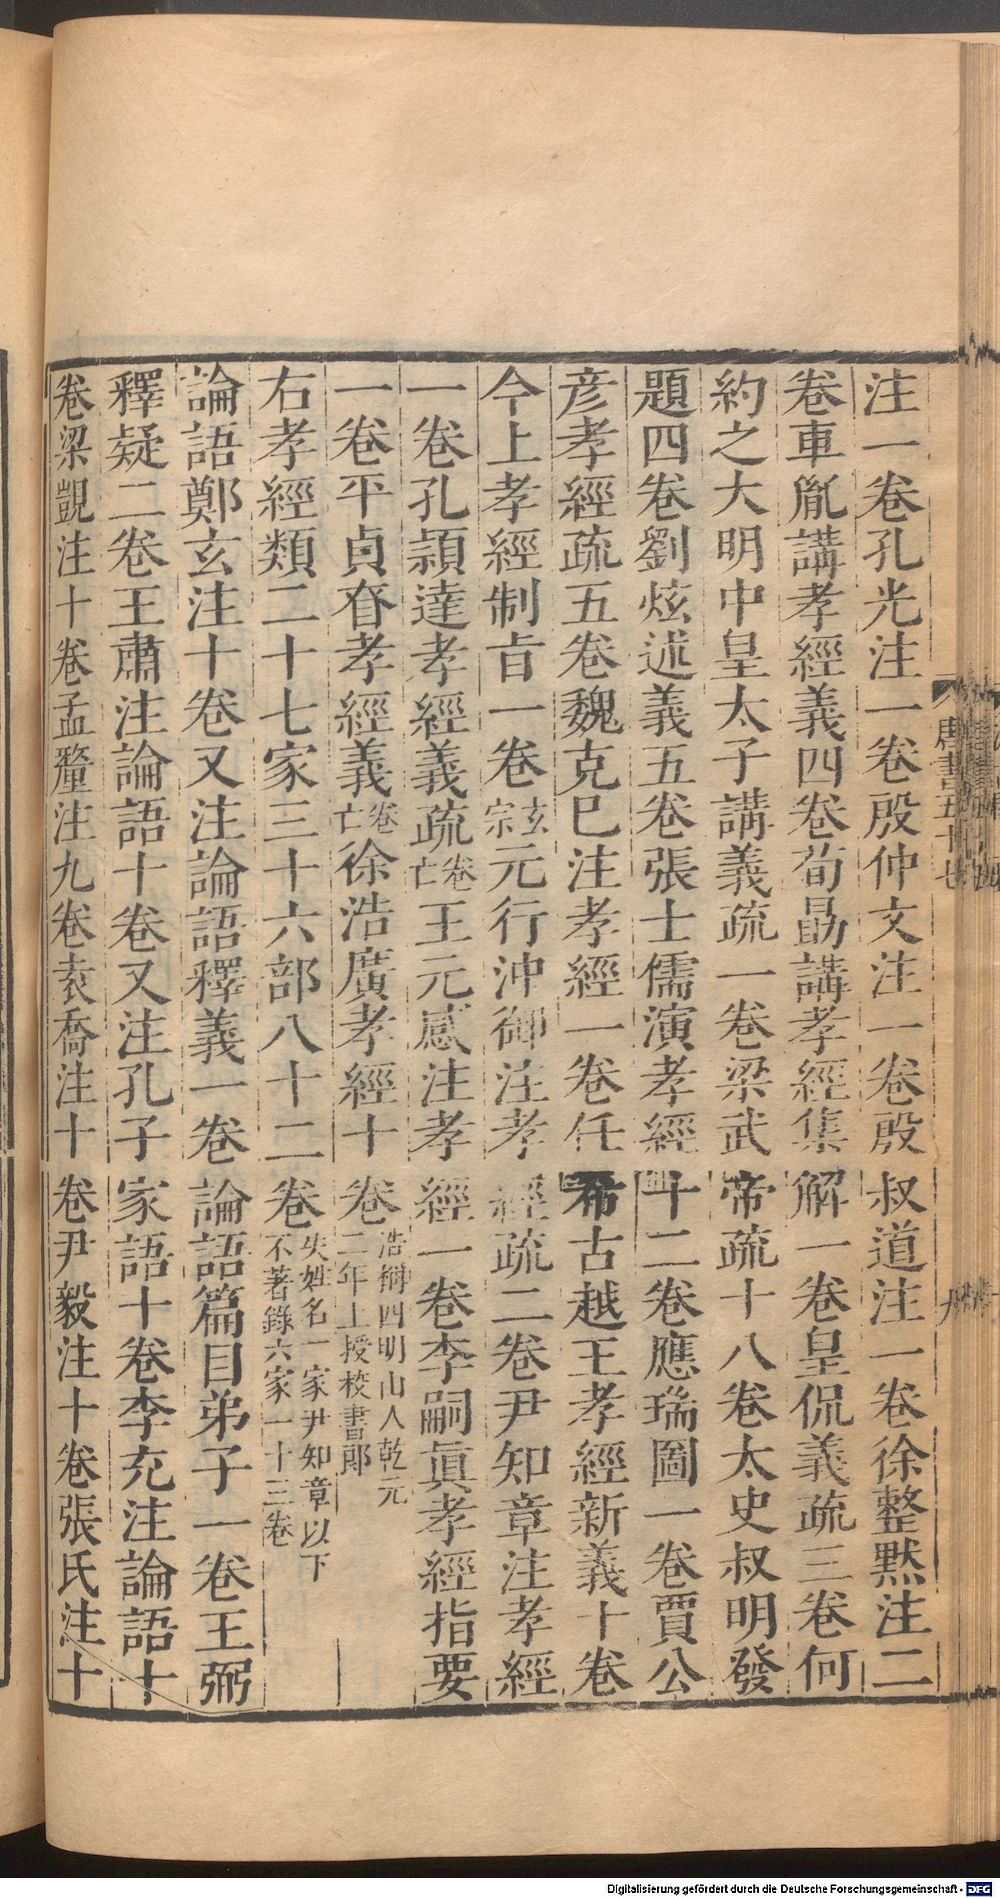 注一卷孔光注一卷殷仲文注一卷殷叔道注一卷徐整默注二
卷車胤講孝經義四卷荀勗講孝經集解一卷皇侃義疏三卷何
約之大明中皇太子講義疏一卷梁武帝疏十八卷太史叔明發
題四卷劉炫述義五卷張士儒演孝經十二卷應瑞圖一卷賈公
彥孝經疏五卷魏克巳注孝經一卷任希古越王孝經新義十卷
今上孝經制旨一卷玄宗元行沖御注孝經疏二卷尹知章注孝經
一卷孔穎達孝經義疏卷亡王元感注孝經一卷李嗣眞孝經指要
一卷平貞眘孝經義卷亡徐浩廣孝經十卷浩稱四明山人乾元二年上授校書郞
右孝經類二十七家三十六部八十二卷失姓名一家尹知章以下不著錄六家一十三卷
論語鄭玄注十卷又注論語釋義一卷論語篇目弟子一卷王弼
釋疑二卷王肅注論語十卷又注孔子家語十卷李充注論語十
卷梁覬注十卷孟釐注九卷袁喬注十卷尹毅注十卷張氏注十
唐書五十七
九
Digitalisierung gefördert durch die Deutsche Forschungsgemeinschaft - DFG